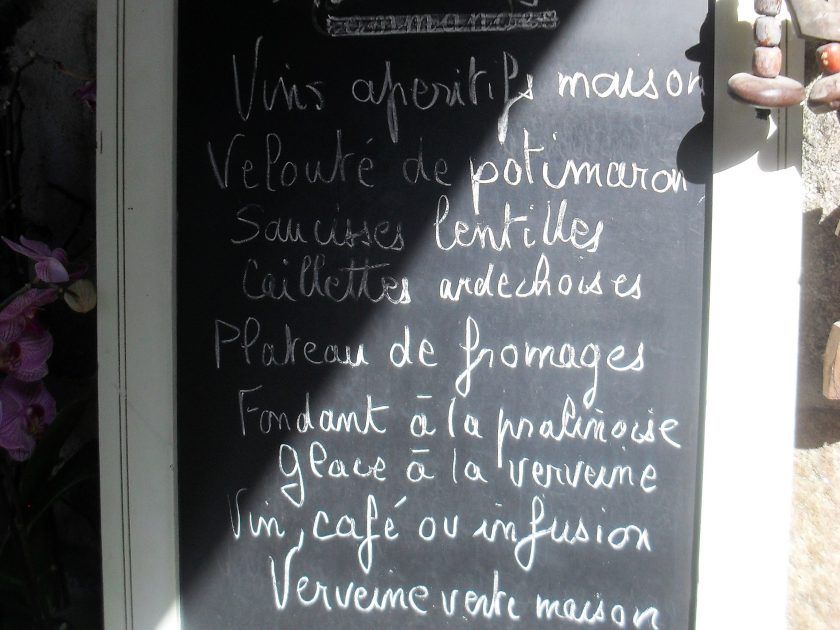 Vins aperitifs maison
Velouté de potimaron
Saucisses lentilles
Caillettes ardechoises
Plateau de fromages
Fondant à la pralinoise
glace à la verveine
Vin, café ou infusion
Verveine verte maison